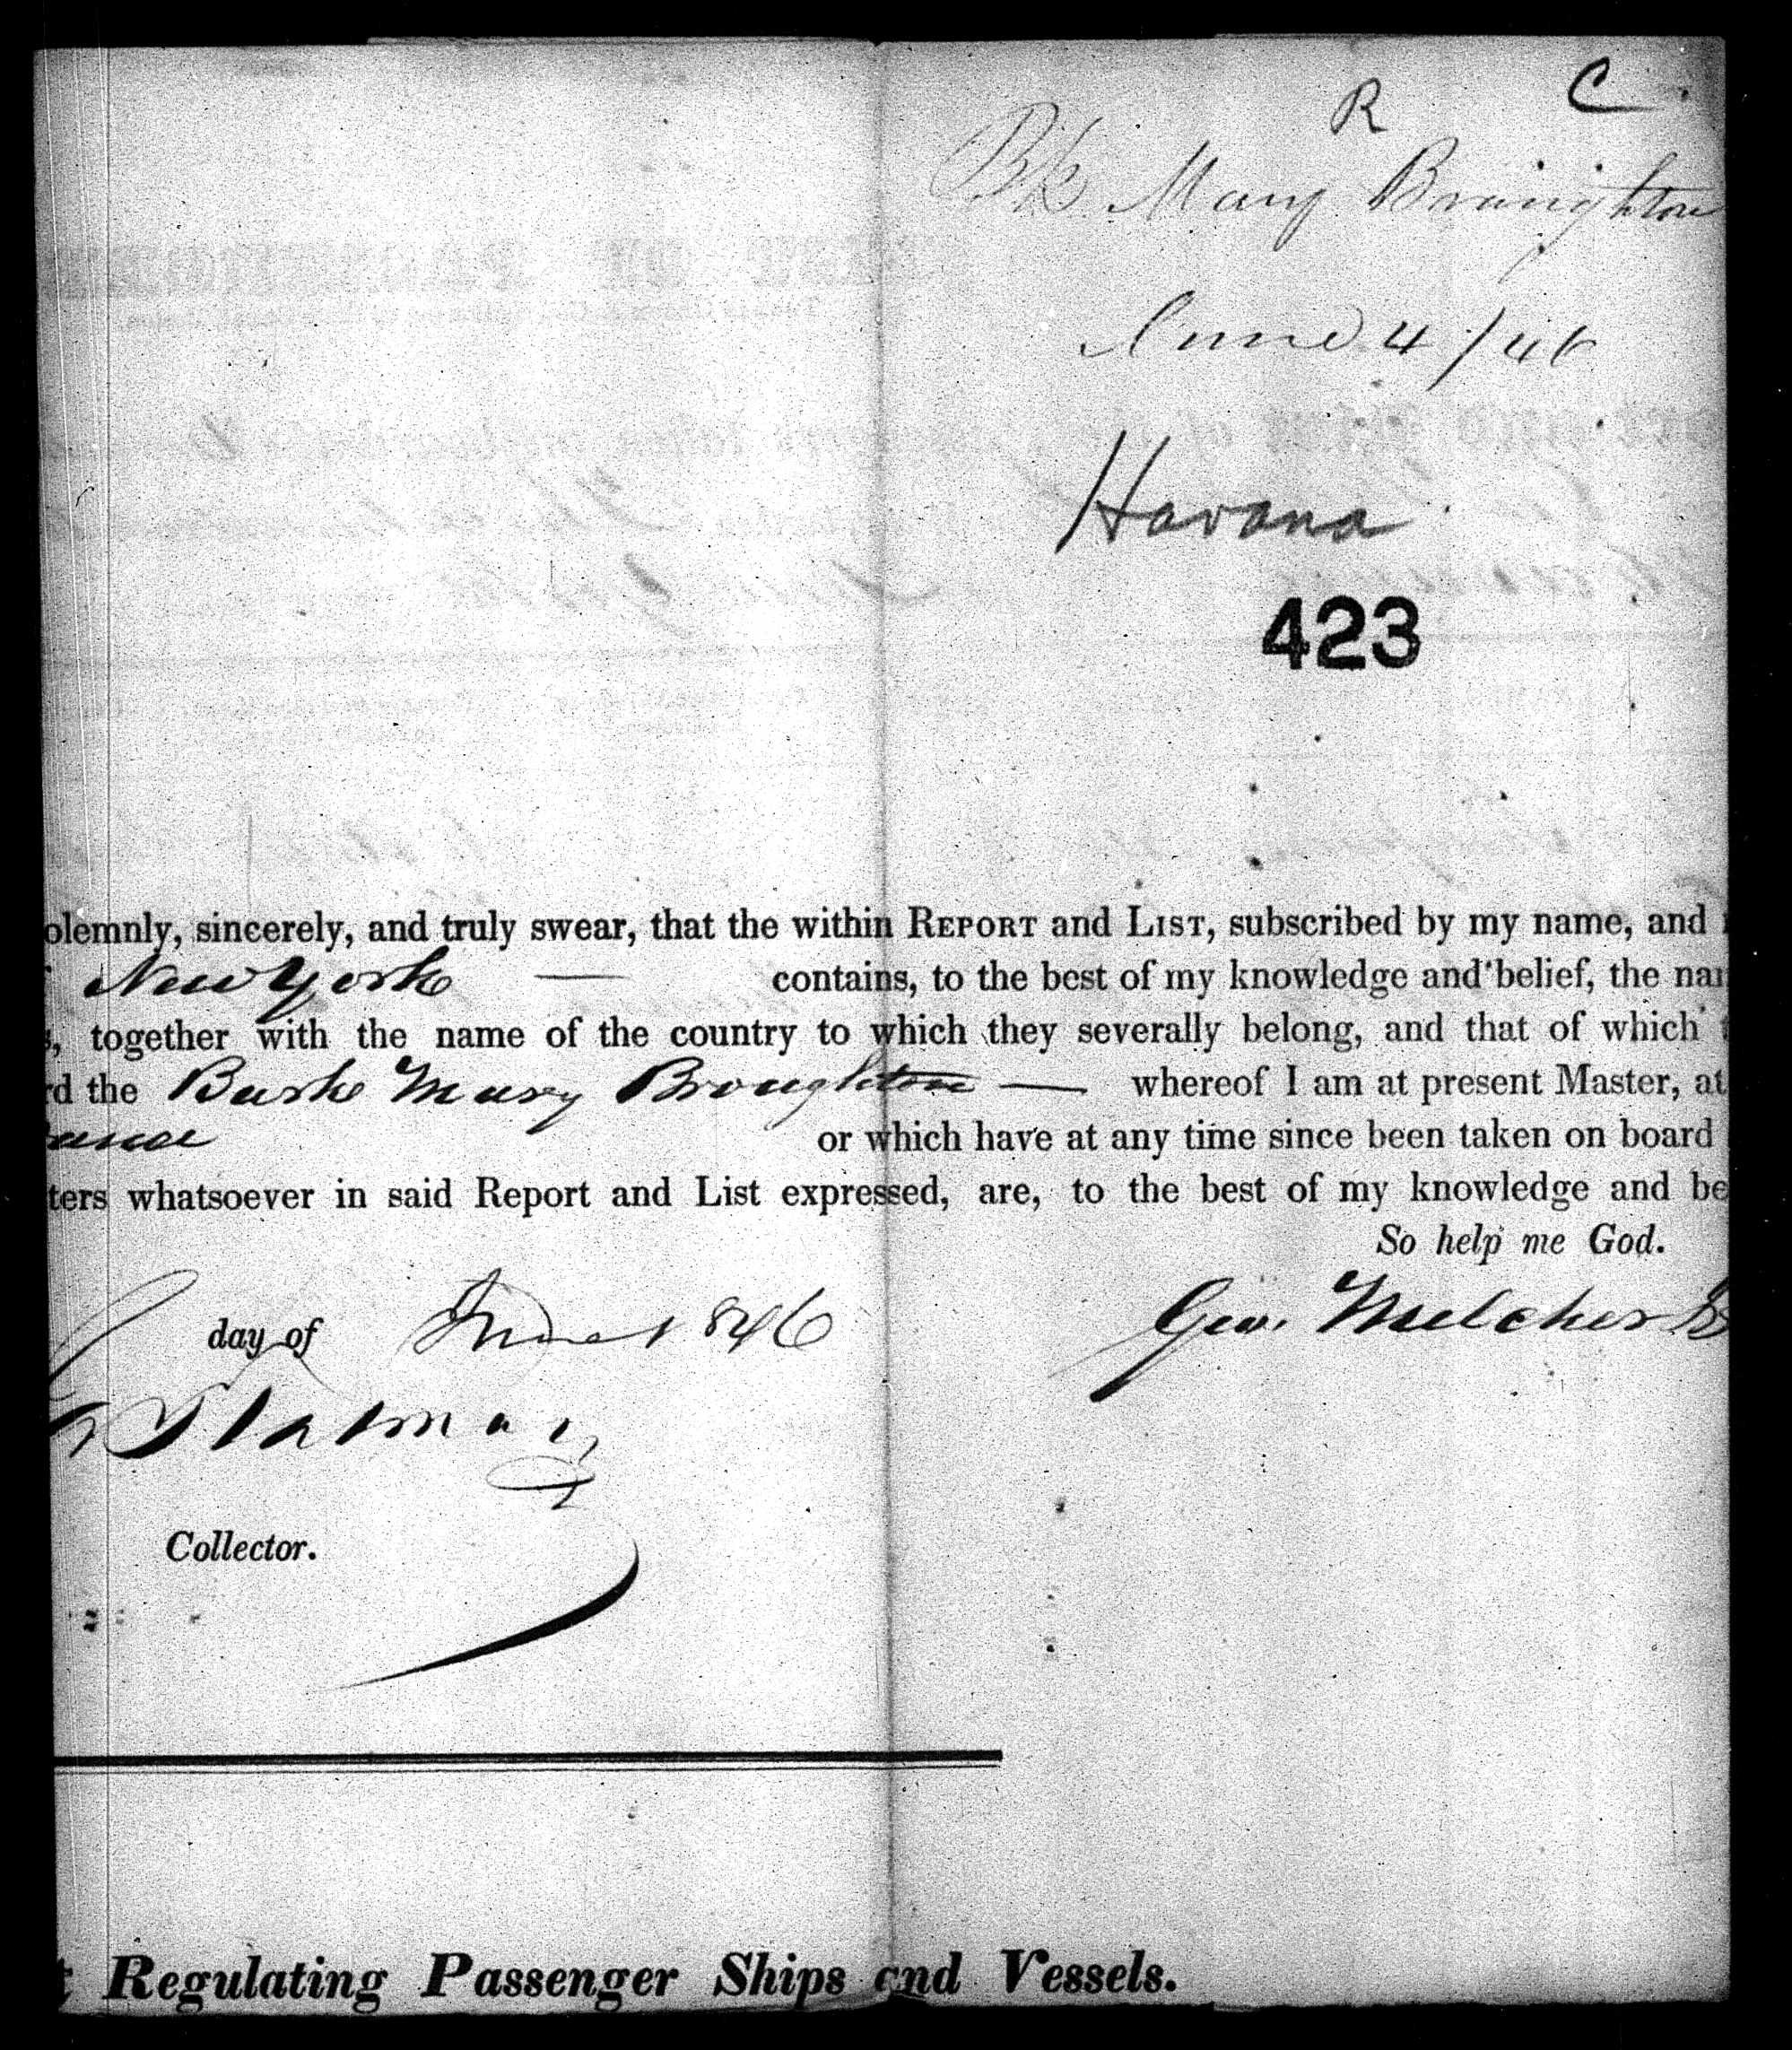 R C
Bk Mary Broughton
June 4/46
Havana
423
olemnly, sincerely, and truly swear, that the within REPORT and LIST, subscribed by my name, and
New York — contains, to the best of my knowledge and belief, the nam
, together with the name of the country to which they severally belong, and that of which
d the Barke Mary Broughton — whereof I am at present Master, at
or which have at any time since been taken on board
ters whatsoever in said Report and List expressed, are, to the best of my knowledge and be
So help me God.
day of June 1846 Geo. Melcher
Collector.
Regulating Passenger Ships and Vessels.